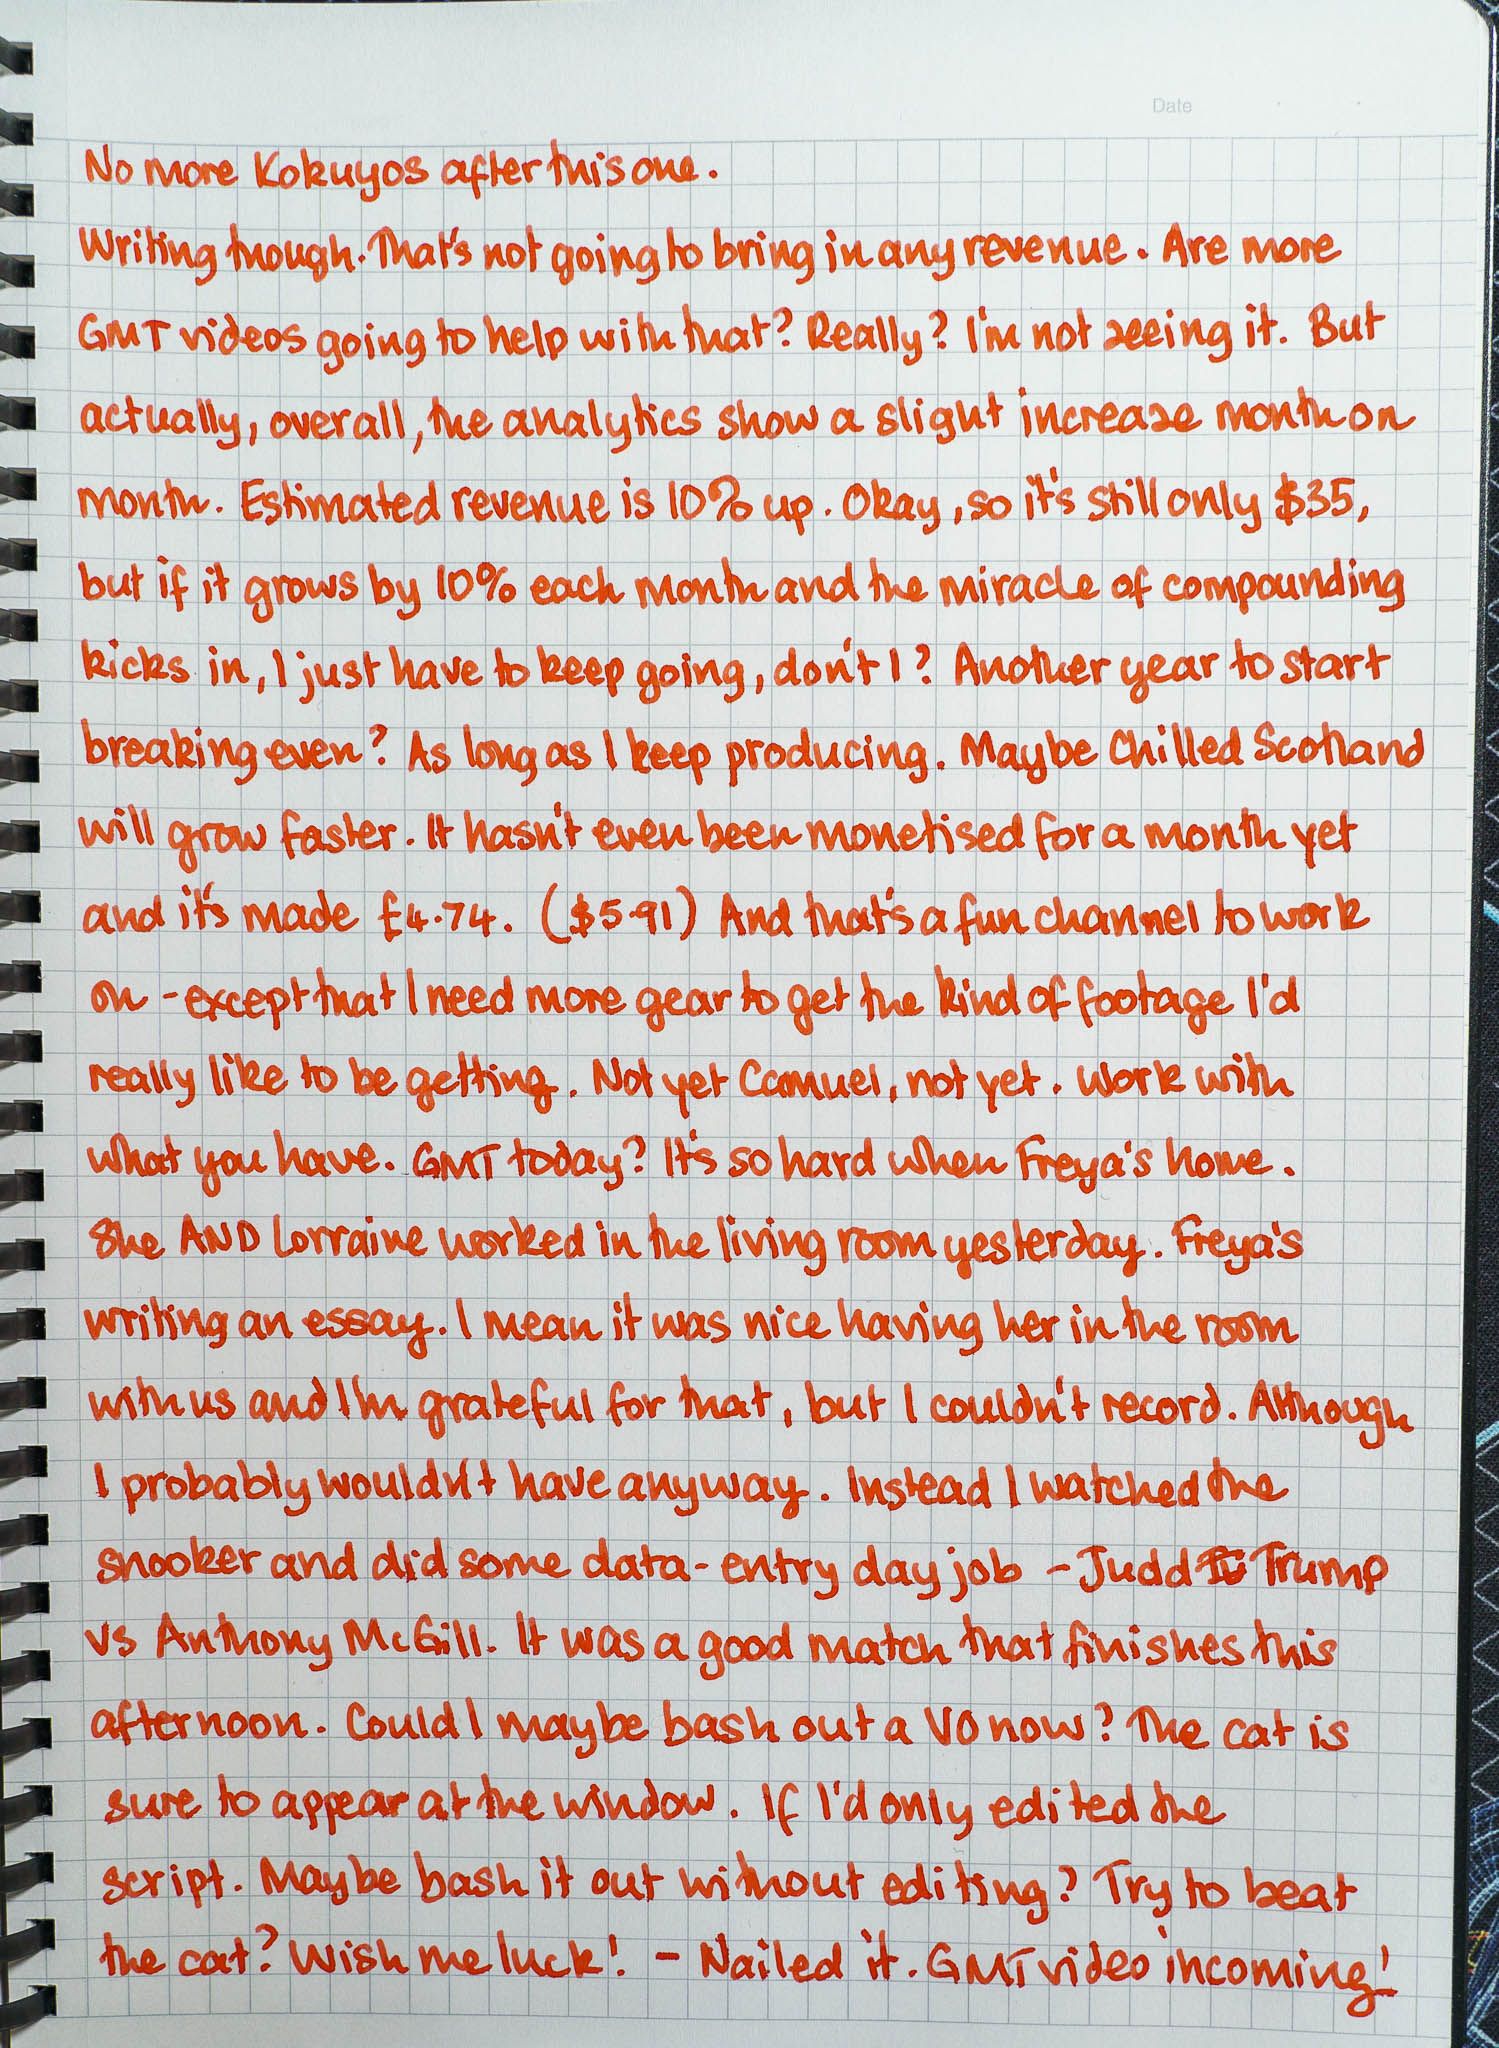 Date
No more Kokuyos after this one.
Writing though. That's not going to bring in any revenue. Are more
GMT videos going to help with that? Really? I'm not seeing it. But
actually, overall, the analytics show a slight increase month on
month. Estimated revenue is 10% up. Okay, so it's still only $35,
but if it grows by 10% each month and the miracle of compounding
kicks in, I just have to keep going, don't I? Another year to start
breaking even? As long as I keep producing. Maybe Chilled Scotland
will grow faster. It hasn't even been monetised for a month yet
and it's made £4.74. ($5.91) And that's a fun channel to work
on - except that I need more gear to get the kind of footage I'd
really like to be getting. Not yet Camuel, not yet. Work with
what you have. GMT today? It's so hard when Freya's home.
She AND Lorraine worked in the living room yesterday. Freya's
writing an essay. I mean it was nice having her in the room
with us and I'm grateful for that, but I couldn't record. Although
I probably wouldn't have anyway. Instead I watched the
snooker and did some data-entry day job - Judd Trump
vs Anthony McGill. It was a good match that finishes this
afternoon. Could I maybe bash out a VO now? The cat is
sure to appear at the window. If I'd only edited the
script. Maybe bash it out without editing? Try to beat
the cat? Wish me luck! - Nailed it. GMT video incoming!